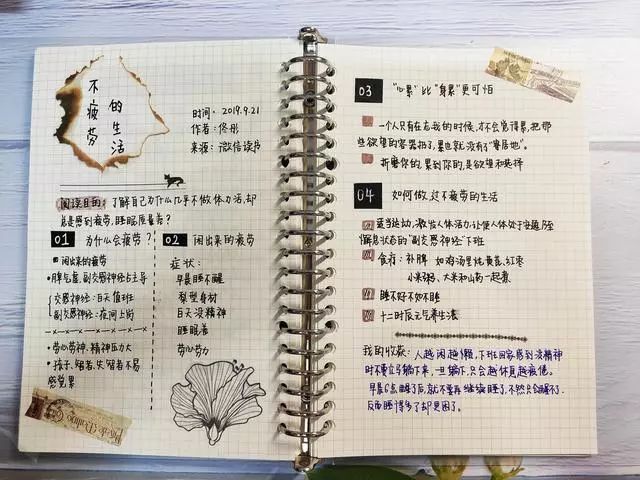 不疲劳
的生活
时间：2019.9.21
作者：佟彤
来源：微信读书
阅读目的：了解自己为什么几乎不做体力活，却
总是感到疲劳，睡眠质量差？
01 为什么会疲劳？
闲出来的疲劳
·脾气虚，副交感神经占主导
交感神经：白天值班
副交感神经：夜间上岗
·劳心劳神，精神压力大
·孩子、智者、失智者不易
感觉累
02 闲出来的疲劳
症状：
早晨睡不醒
梨型身材
白天没精神
睡眠差
劳心劳力
03 "心累"比"身累"更可怕
一个人只有在忘我的时候，才不会觉得累，把那
些欲望的容器扔了，累也就没有了"寄居地"。
折磨你的，累到你的，是欲望和选择
04 如何做，过不疲劳的生活
适当运动，激发人体活力，让使人体处于安逸、松
懈怠状态的"副交感神经"下班
食疗：补脾 如鸡汤里炖黄芪、红枣
小米粥、大米和山药一起煮
睡不好不如不睡
十二时辰元气养生法
我的收获：人越闲越懒，下班回家感到没精神
时不要立马躺下来，一旦躺下，只会越休息越疲倦。
早晨6点醒了后，就不要再继续睡了，不然只会醒不了，
反而睡得多了却更困了。